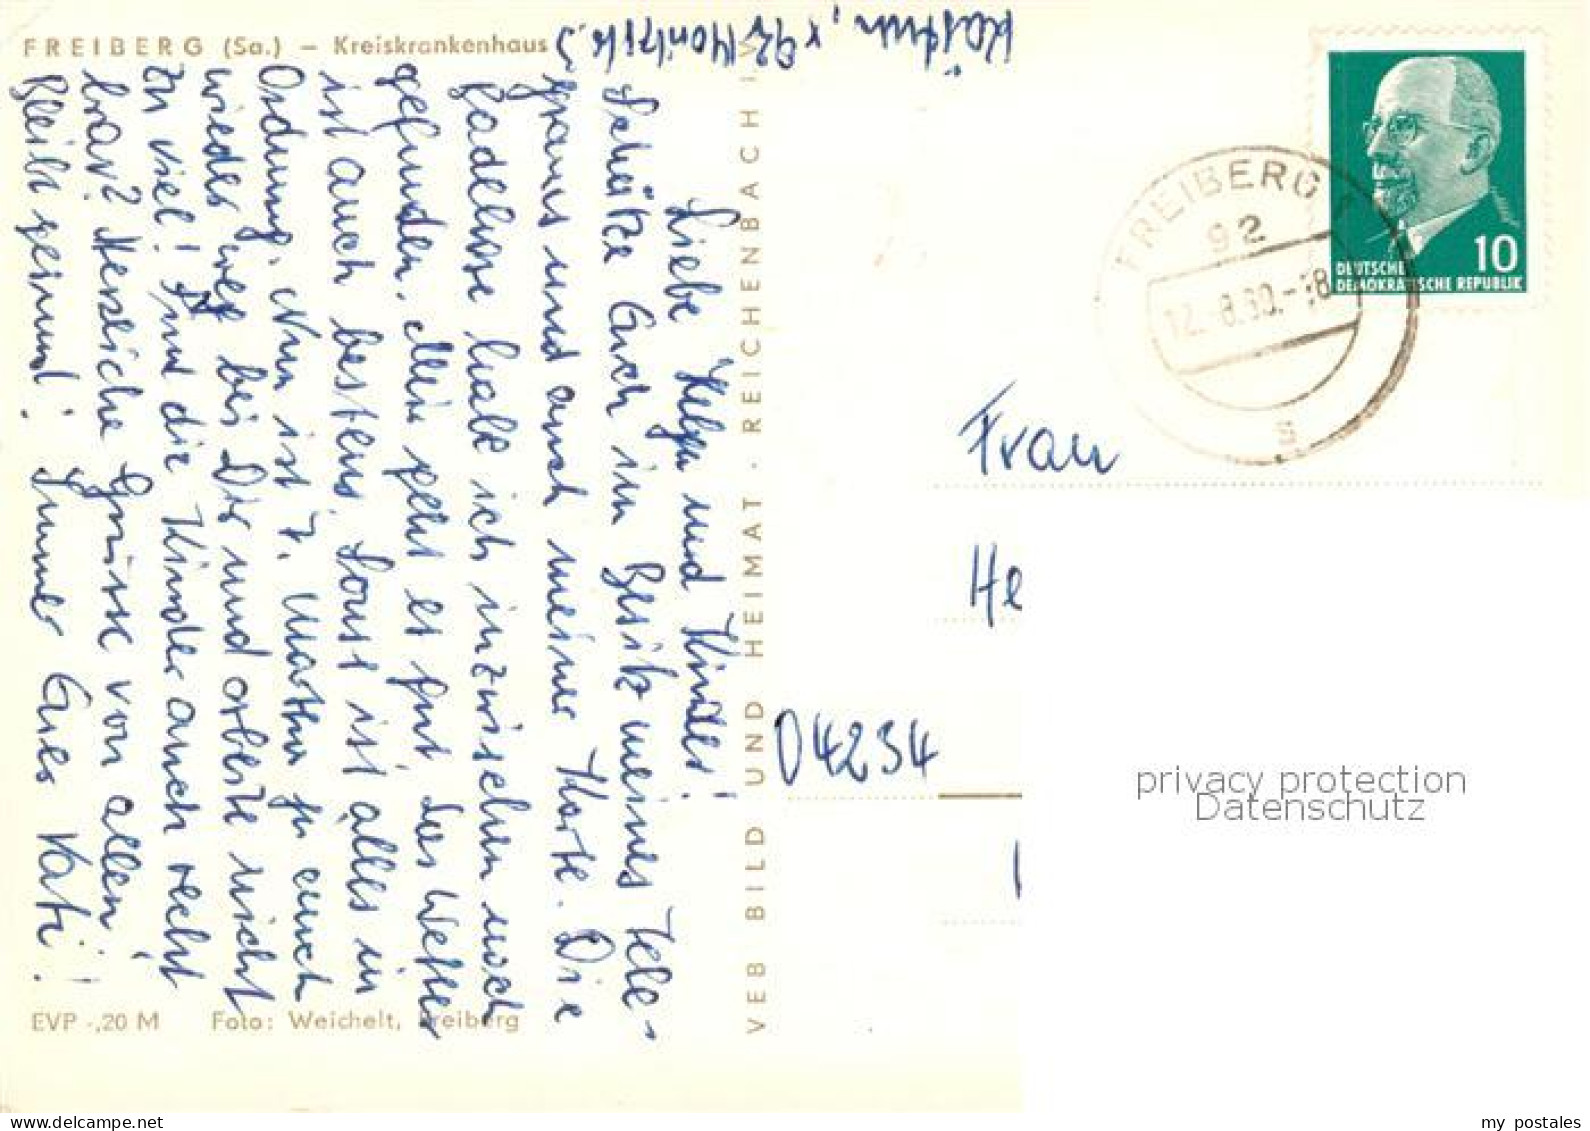 FREIBERG (Sa.) – Kreiskrankenhaus
Liebe Helga und Kinder!
Schätze Euch im Besitz meines Tele-
gramms und auch meiner Karte. Die
Badehose habe ich inzwischen noch
gefunden. Mir geht es gut, das Wetter
ist auch bestens. Sonst ist alles in
Ordnung. Nun ist T. Martha ja auch
wieder bei Dir und arbeite nicht
zu viel! Sind die Kinder auch recht
brav? Herzliche Grüsse von allen!
Bleibt gesund! Immer Euer Vati!
EVP -,20 M
Foto: Weichelt, Freiberg
VEB BILD UND HEIMAT · REICHENBACH I V
FREIBERG
92
12.-8.60.-18
s
10
DEUTSCHE
DEMOKRATISCHE REPUBLIK
Frau
He
04234
privacy protection
Datenschutz
my postales